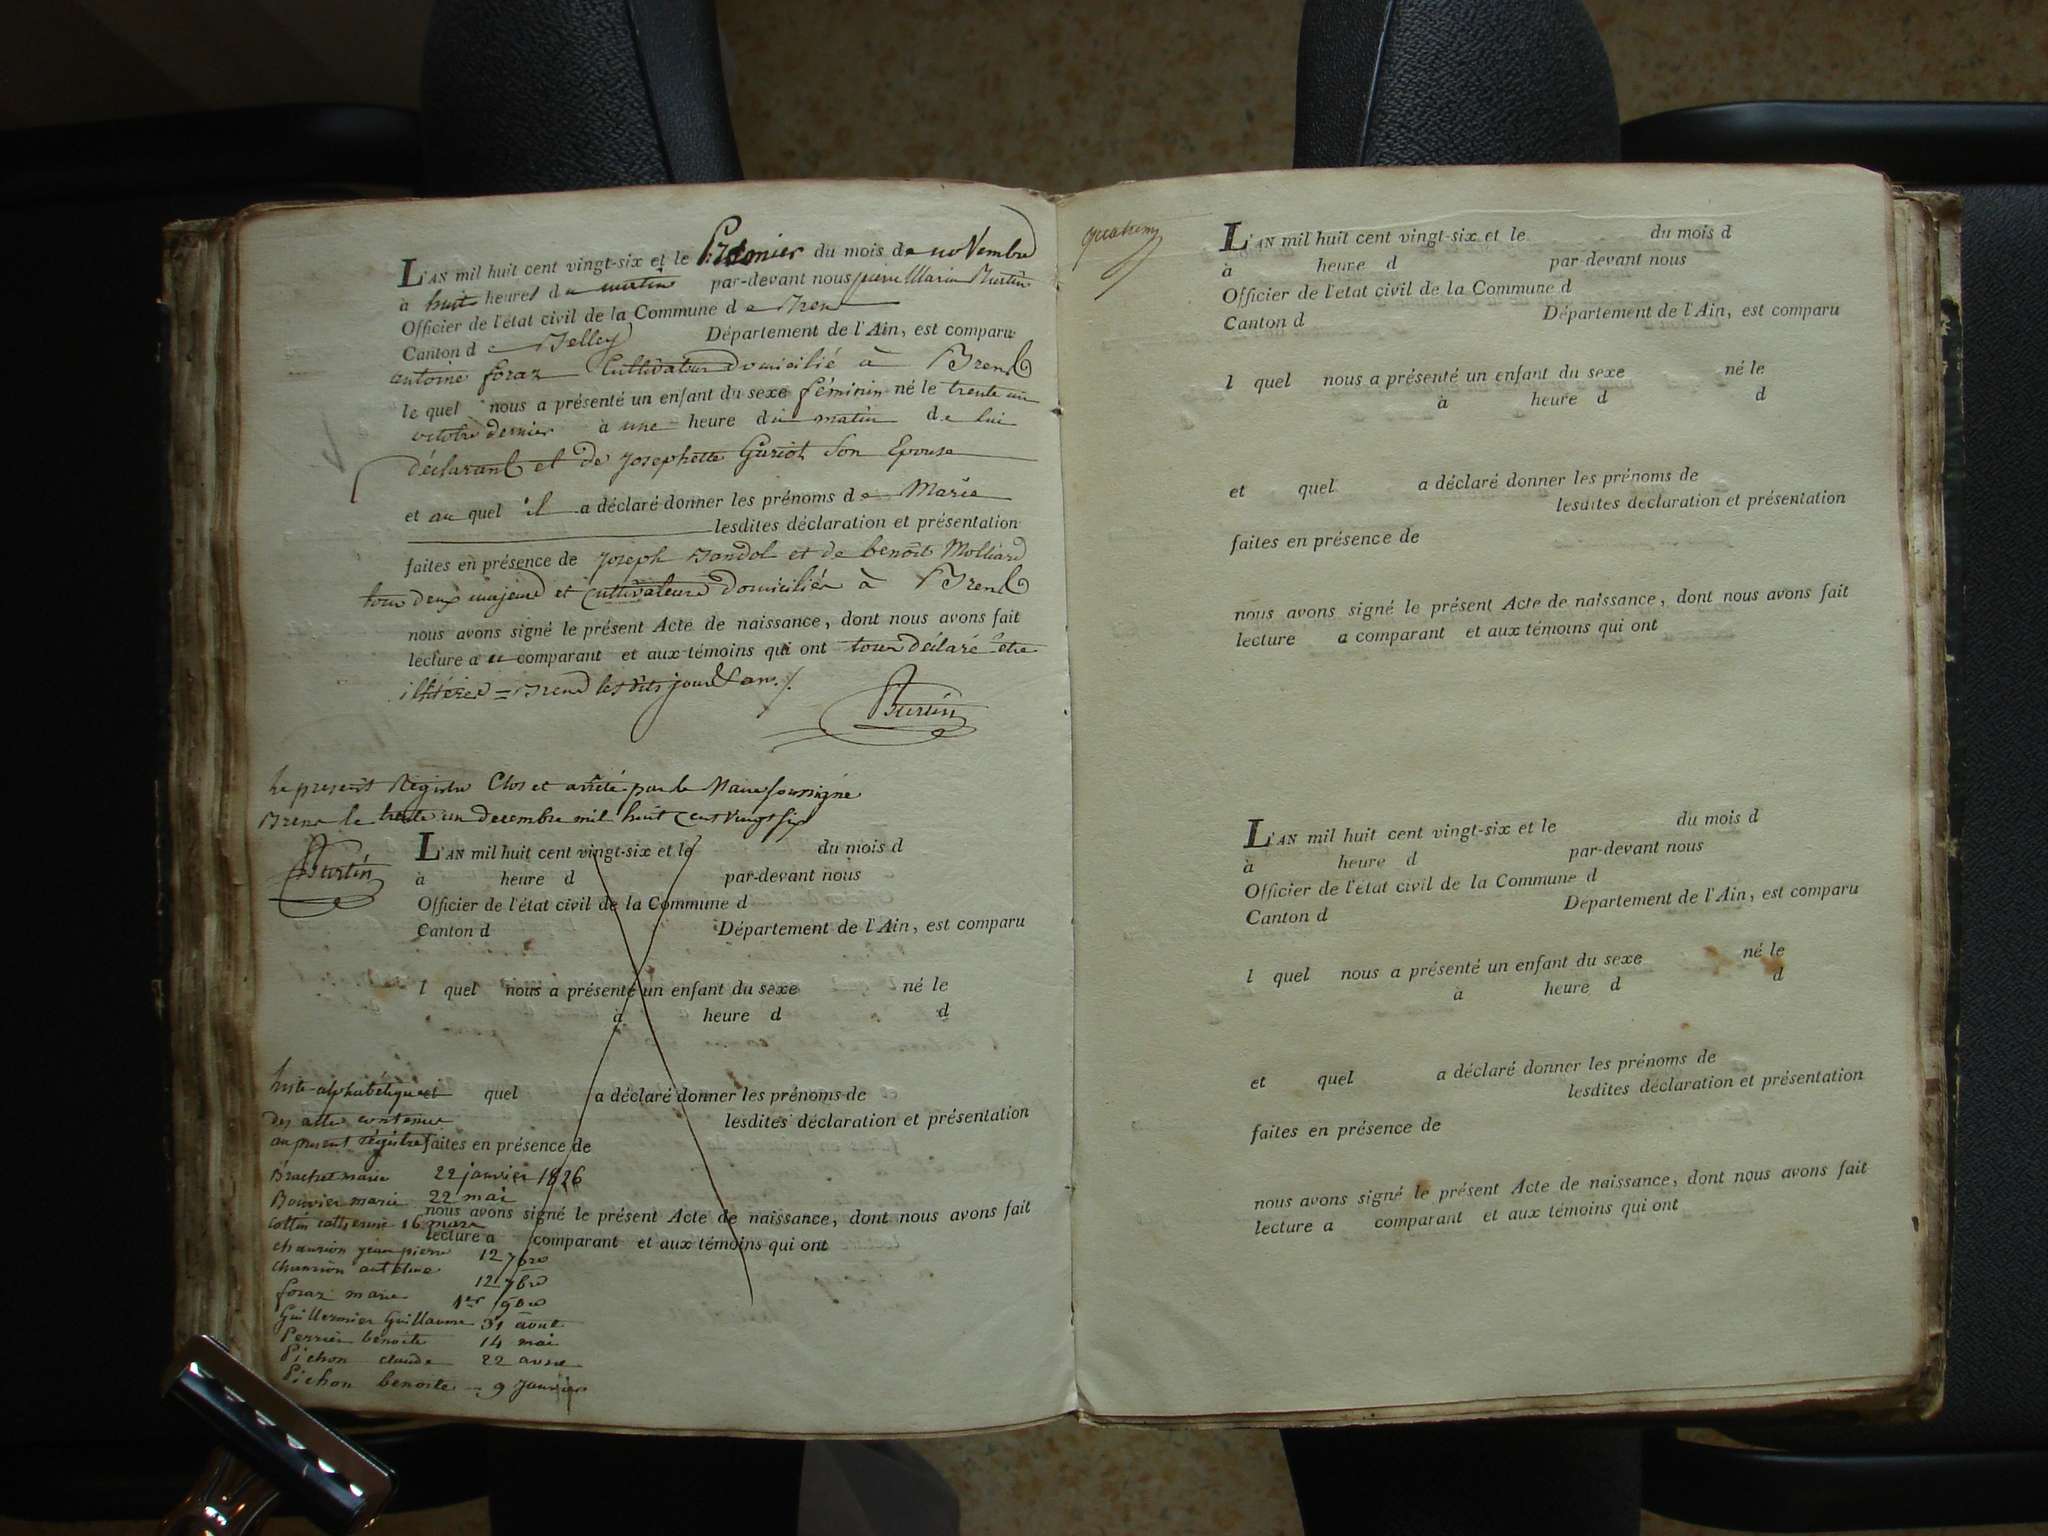 L'AN mil huit cent vingt-six et le Premier du mois de novembre
à huit heures du matin par-devant nous pierre Marin Burtin
Officier de l'état civil de la Commune de Brens
Canton de Belley Département de l'Ain, est comparu
antoine foraz Cultivateur domicilié à Brens
le quel nous a présenté un enfant du sexe féminin né le trente un
octobre dernier à une heure du matin de lui
déclarant et de Josephette Guriot Son Epouse
et au quel il a déclaré donner les prénoms de Marie
lesdites déclaration et présentation
faites en présence de Joseph Bandol et de benoit Molliard
tous deux majeurs et cultivateurs domiciliés à Brens
nous avons signé le présent Acte de naissance, dont nous avons fait
lecture au comparant et aux témoins qui ont tous déclaré être
illitérés = Brens les dits jour & an ./.
Burtin
Le present Registre Clos et arrêté par le Maire soussigné
Brens le trente un decembre mil huit cent vingt six
Burtin
L'AN mil huit cent vingt-six et le du mois d
à heure d par-devant nous
Officier de l'état civil de la Commune d
Canton d Département de l'Ain, est comparu
l quel nous a présenté un enfant du sexe né le
à heure d d
et quel a déclaré donner les prénoms de
lesdites déclaration et présentation
faites en présence de
nous avons signé le présent Acte de naissance, dont nous avons fait
lecture a comparant et aux témoins qui ont
Liste alphabétique
des actes contenus
au present régistre
Brachet marie 22 janvier 1826
Bouvier marie 22 mai
Cottin catherine 16 mars
chamion jean pierre 12 7bre
chamion antelme 12 7bre
foraz marie 1er 9bre
Guillermier Guillaume 31 aout
Perrier benoite 14 mai
Pichon claude 22 avril
Pichon benoite 9 Janvier
L'AN mil huit cent vingt-six et le du mois d
à heure d par-devant nous
Officier de l'état civil de la Commune d
Canton d Département de l'Ain, est comparu
l quel nous a présenté un enfant du sexe né le
à heure d d
et quel a déclaré donner les prénoms de
lesdites déclaration et présentation
faites en présence de
nous avons signé le présent Acte de naissance, dont nous avons fait
lecture a comparant et aux témoins qui ont
L'AN mil huit cent vingt-six et le du mois d
à heure d par-devant nous
Officier de l'état civil de la Commune d
Canton d Département de l'Ain, est comparu
l quel nous a présenté un enfant du sexe né le
à heure d d
et quel a déclaré donner les prénoms de
lesdites déclaration et présentation
faites en présence de
nous avons signé le présent Acte de naissance, dont nous avons fait
lecture a comparant et aux témoins qui ont